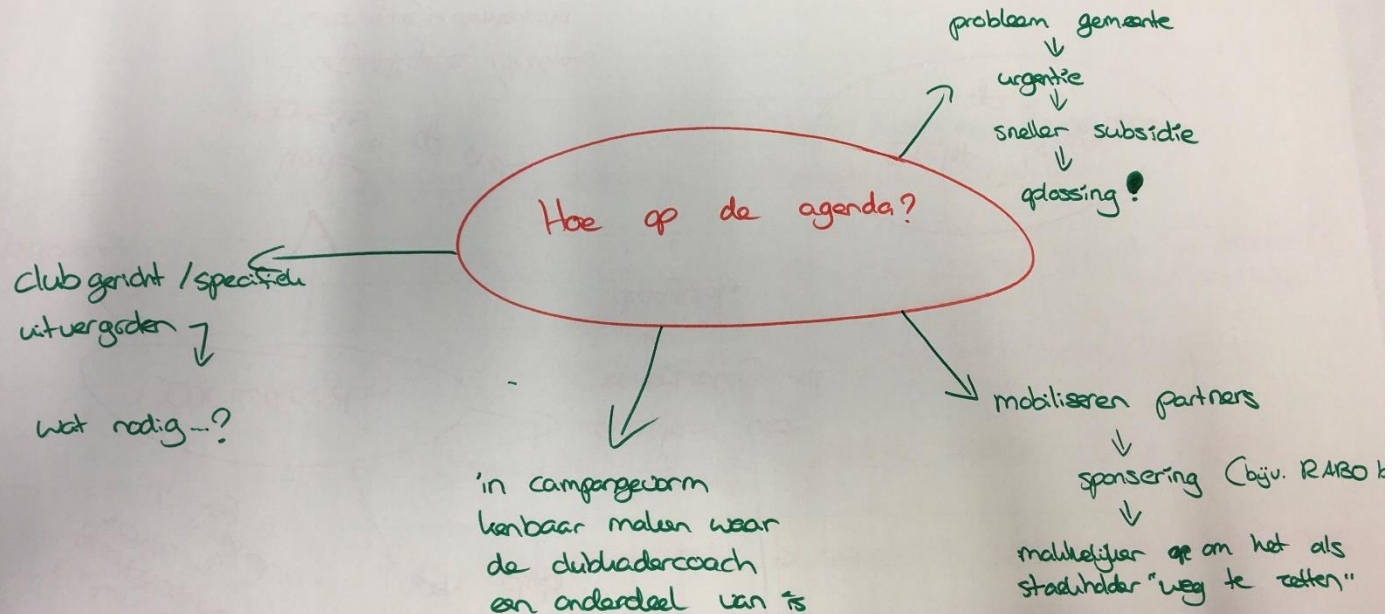 Hoe op de agenda?
probleem gemeente
↓
urgentie
↓
sneller subsidie
↓
oplossing!
club gericht / specifiek
uitvergroten
wat nodig...?
in campangevorm
kenbaar maken waar
de clubkadercoach
een onderdeel van is
mobiliseren partners
↓
sponsering (bijv. RABO
↓
makkelijker op om het als
stackholder "weg te zetten"